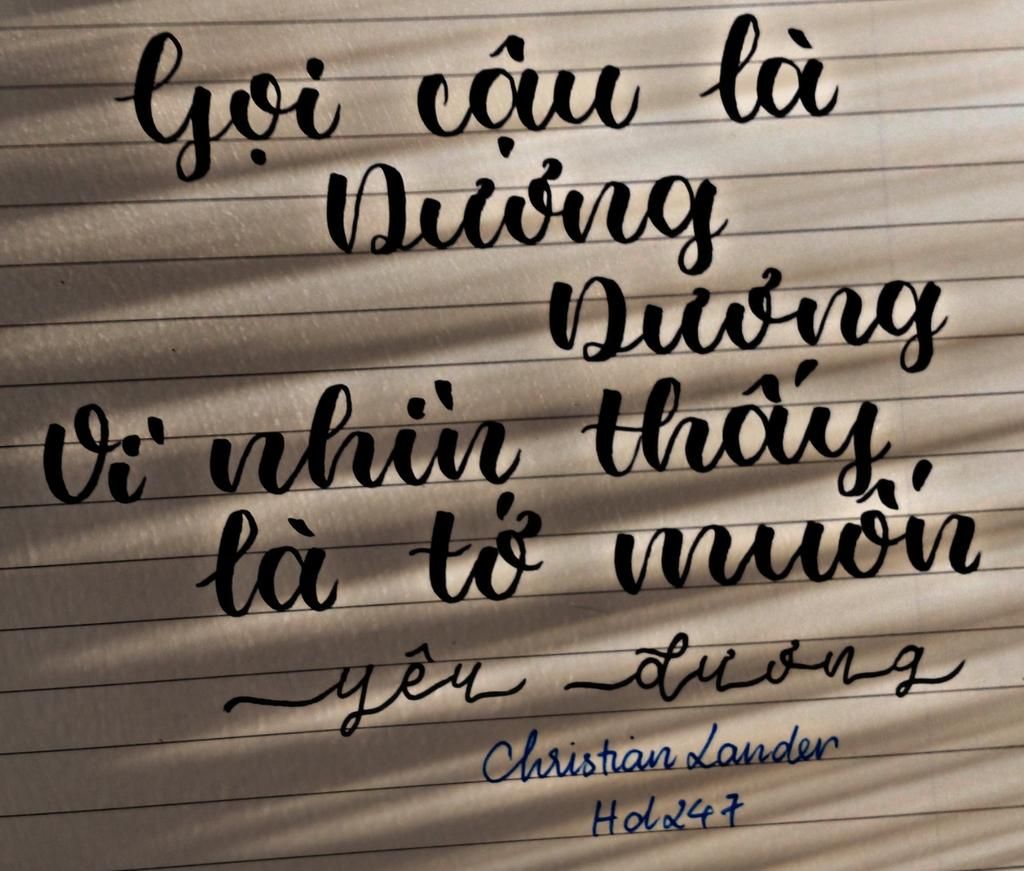 Gọi cậu là
Dương
Dương
Vì nhìn thấy
là tớ muốn
yêu đương
Christian Lander
Hol247